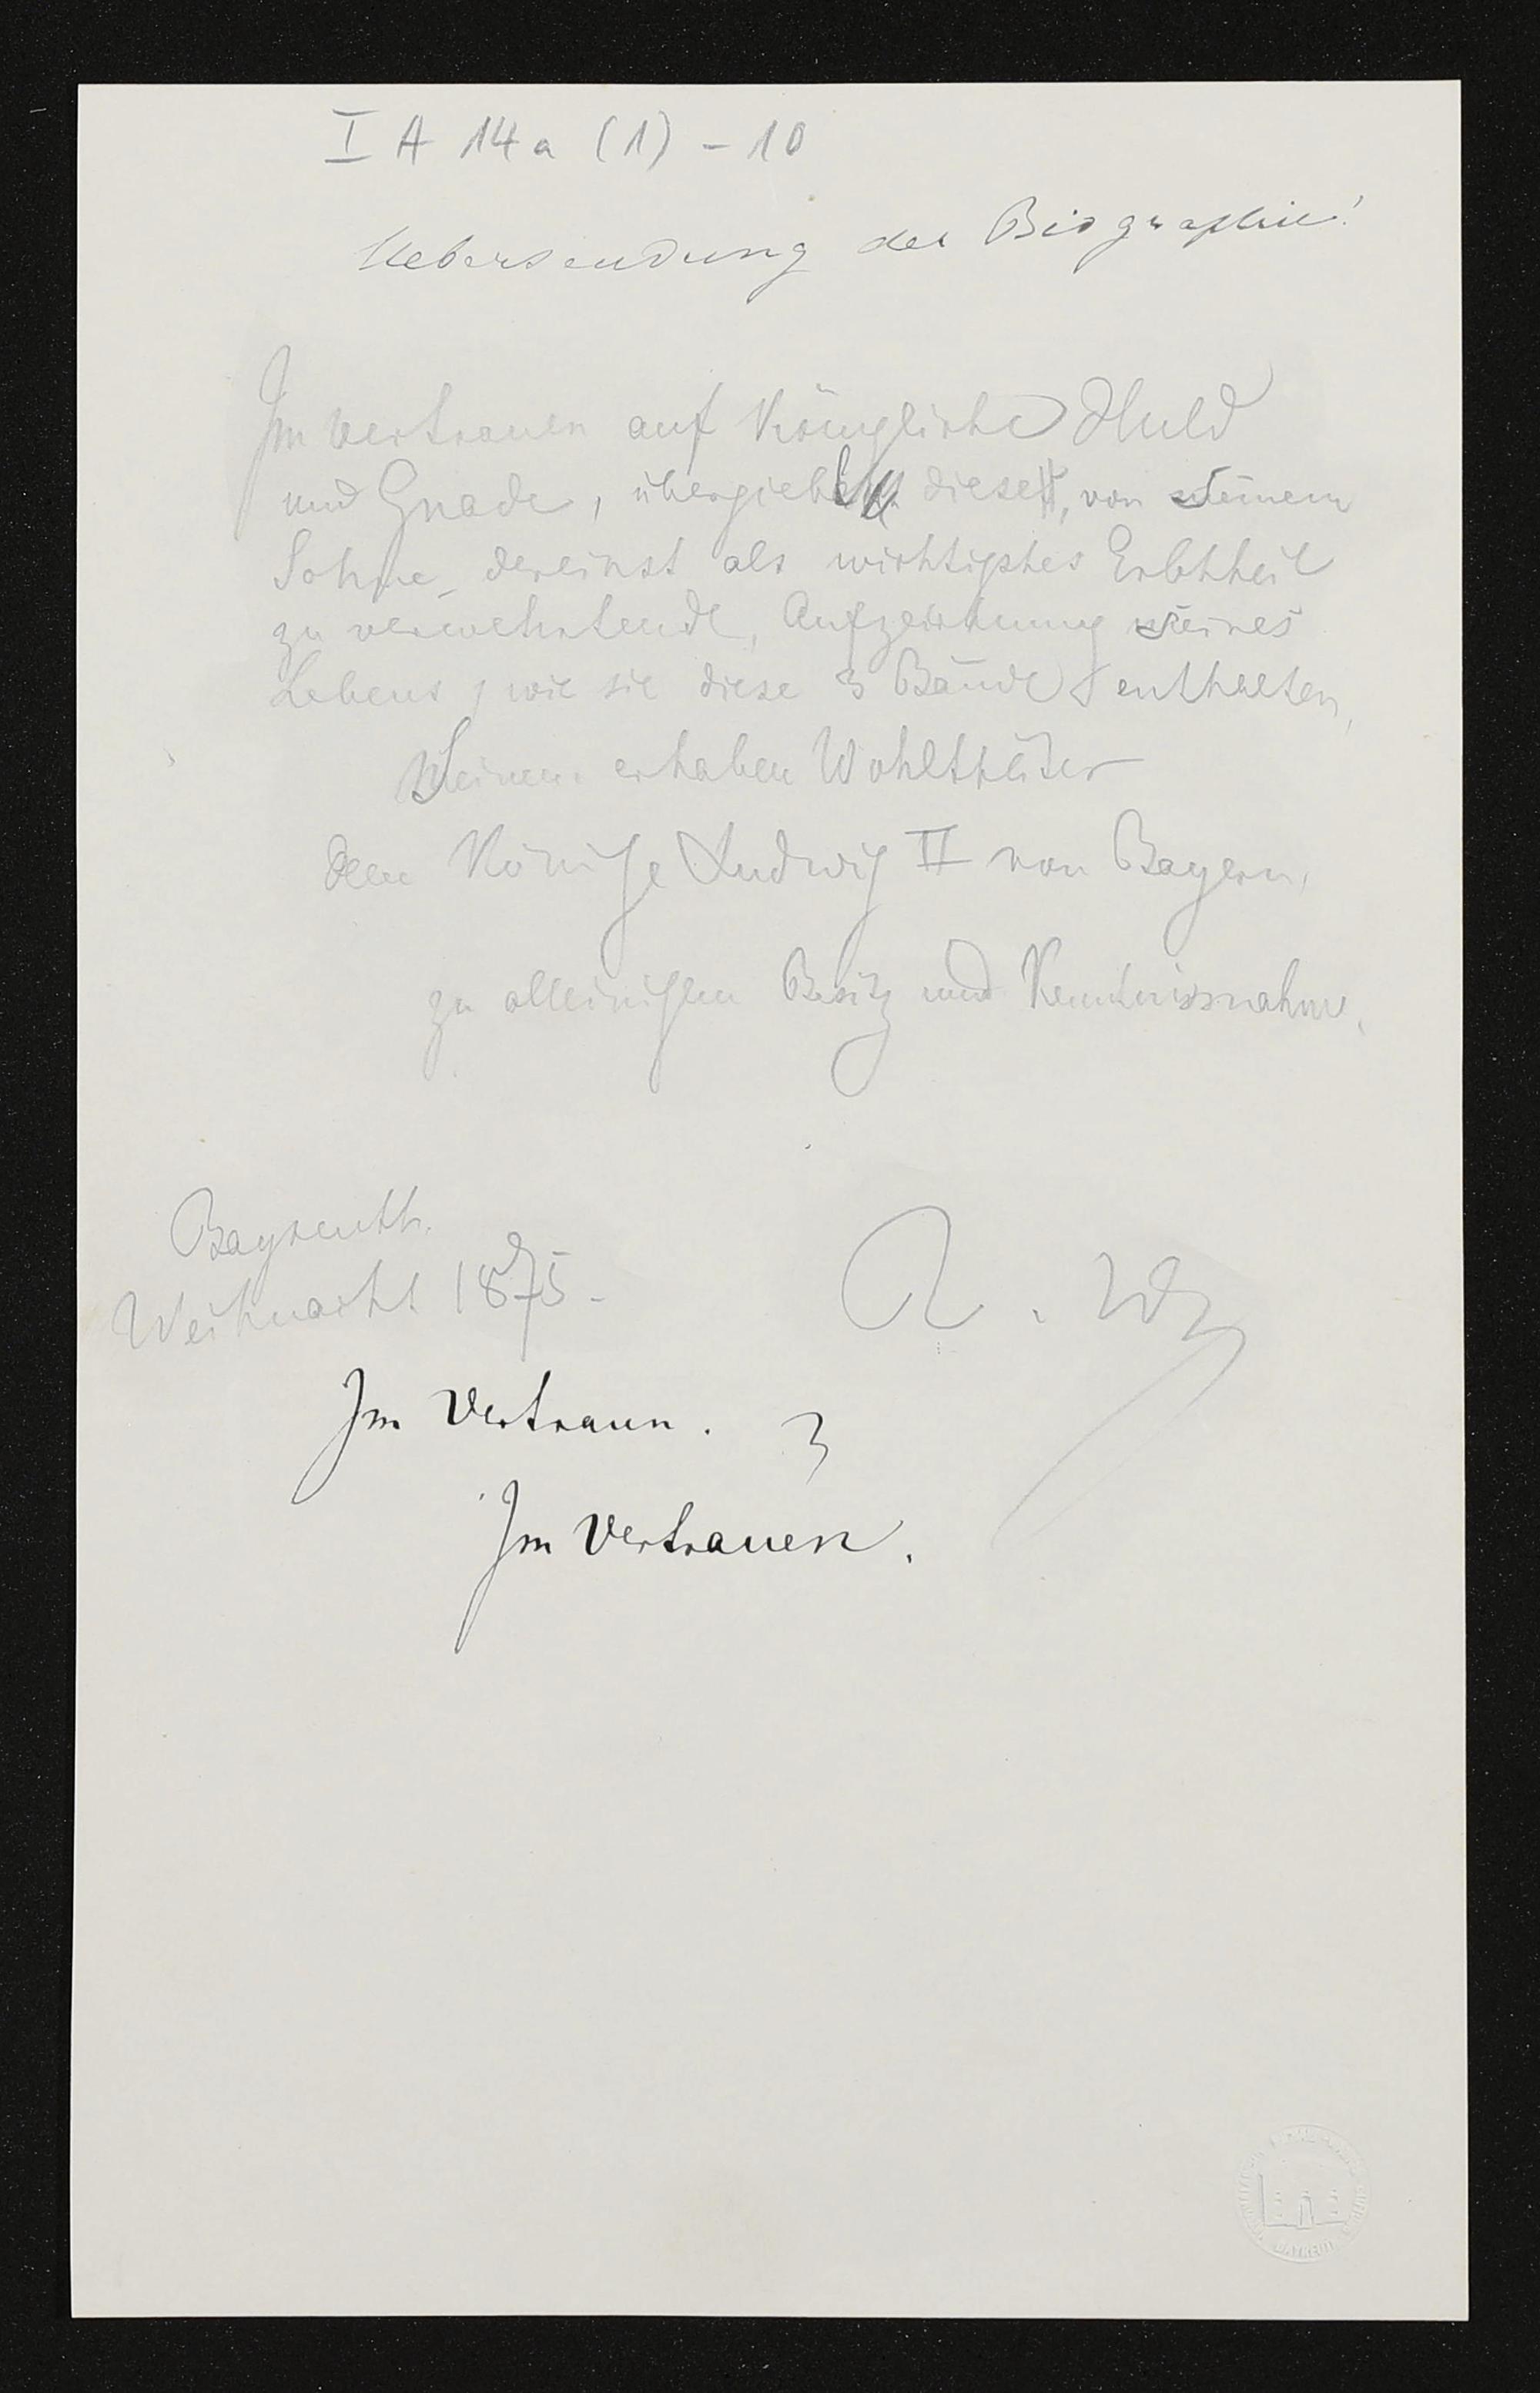 I A 14a (1) - 10
Uebersendung der Biographie!
Im Vertrauen auf Königliche Huld
und Gnade, übergiebt diese, von seinem
Sohne dereinst als wichtigstes Erbtheil
zu verwehrtende, Aufzeichnung seines
Lebens, wie sie diese 3 Bände enthalten,
Seinem erhaben Wohlthäter
dem Könige Ludwig II von Bayern,
zu alleinigem Besitz und Kenntnissnahme.
Bayreuth.
Weihnacht 1875.
R. W.
Im Vertraun. 3
Im Vertrauen.